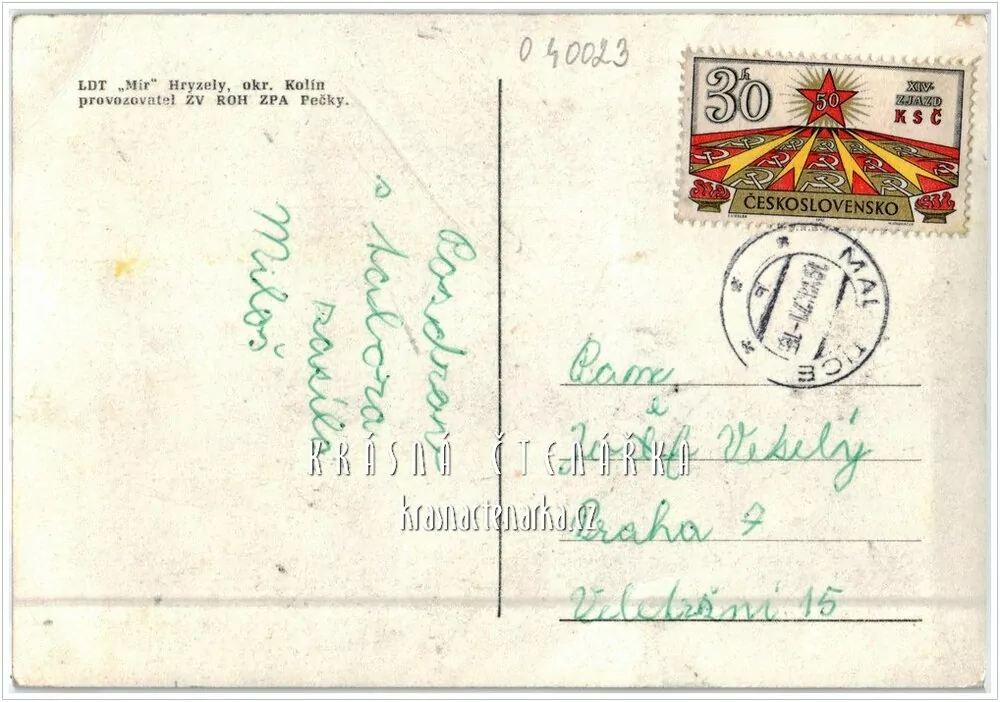 040023
LDT „Mír“ Hryzely, okr. Kolín
provozovatel ZV ROH ZPA Pečky.
30h
50
XIV.
ZJAZD
KSČ
ČESKOSLOVENSKO
MAL ICE
Pozdrav
s tábora
zasílá
Miloš
Pan
Josef Veselý
Praha 7
Veletržní 15
KRÁSNÁ ČTENÁŘKA
krasnactenarka.cz